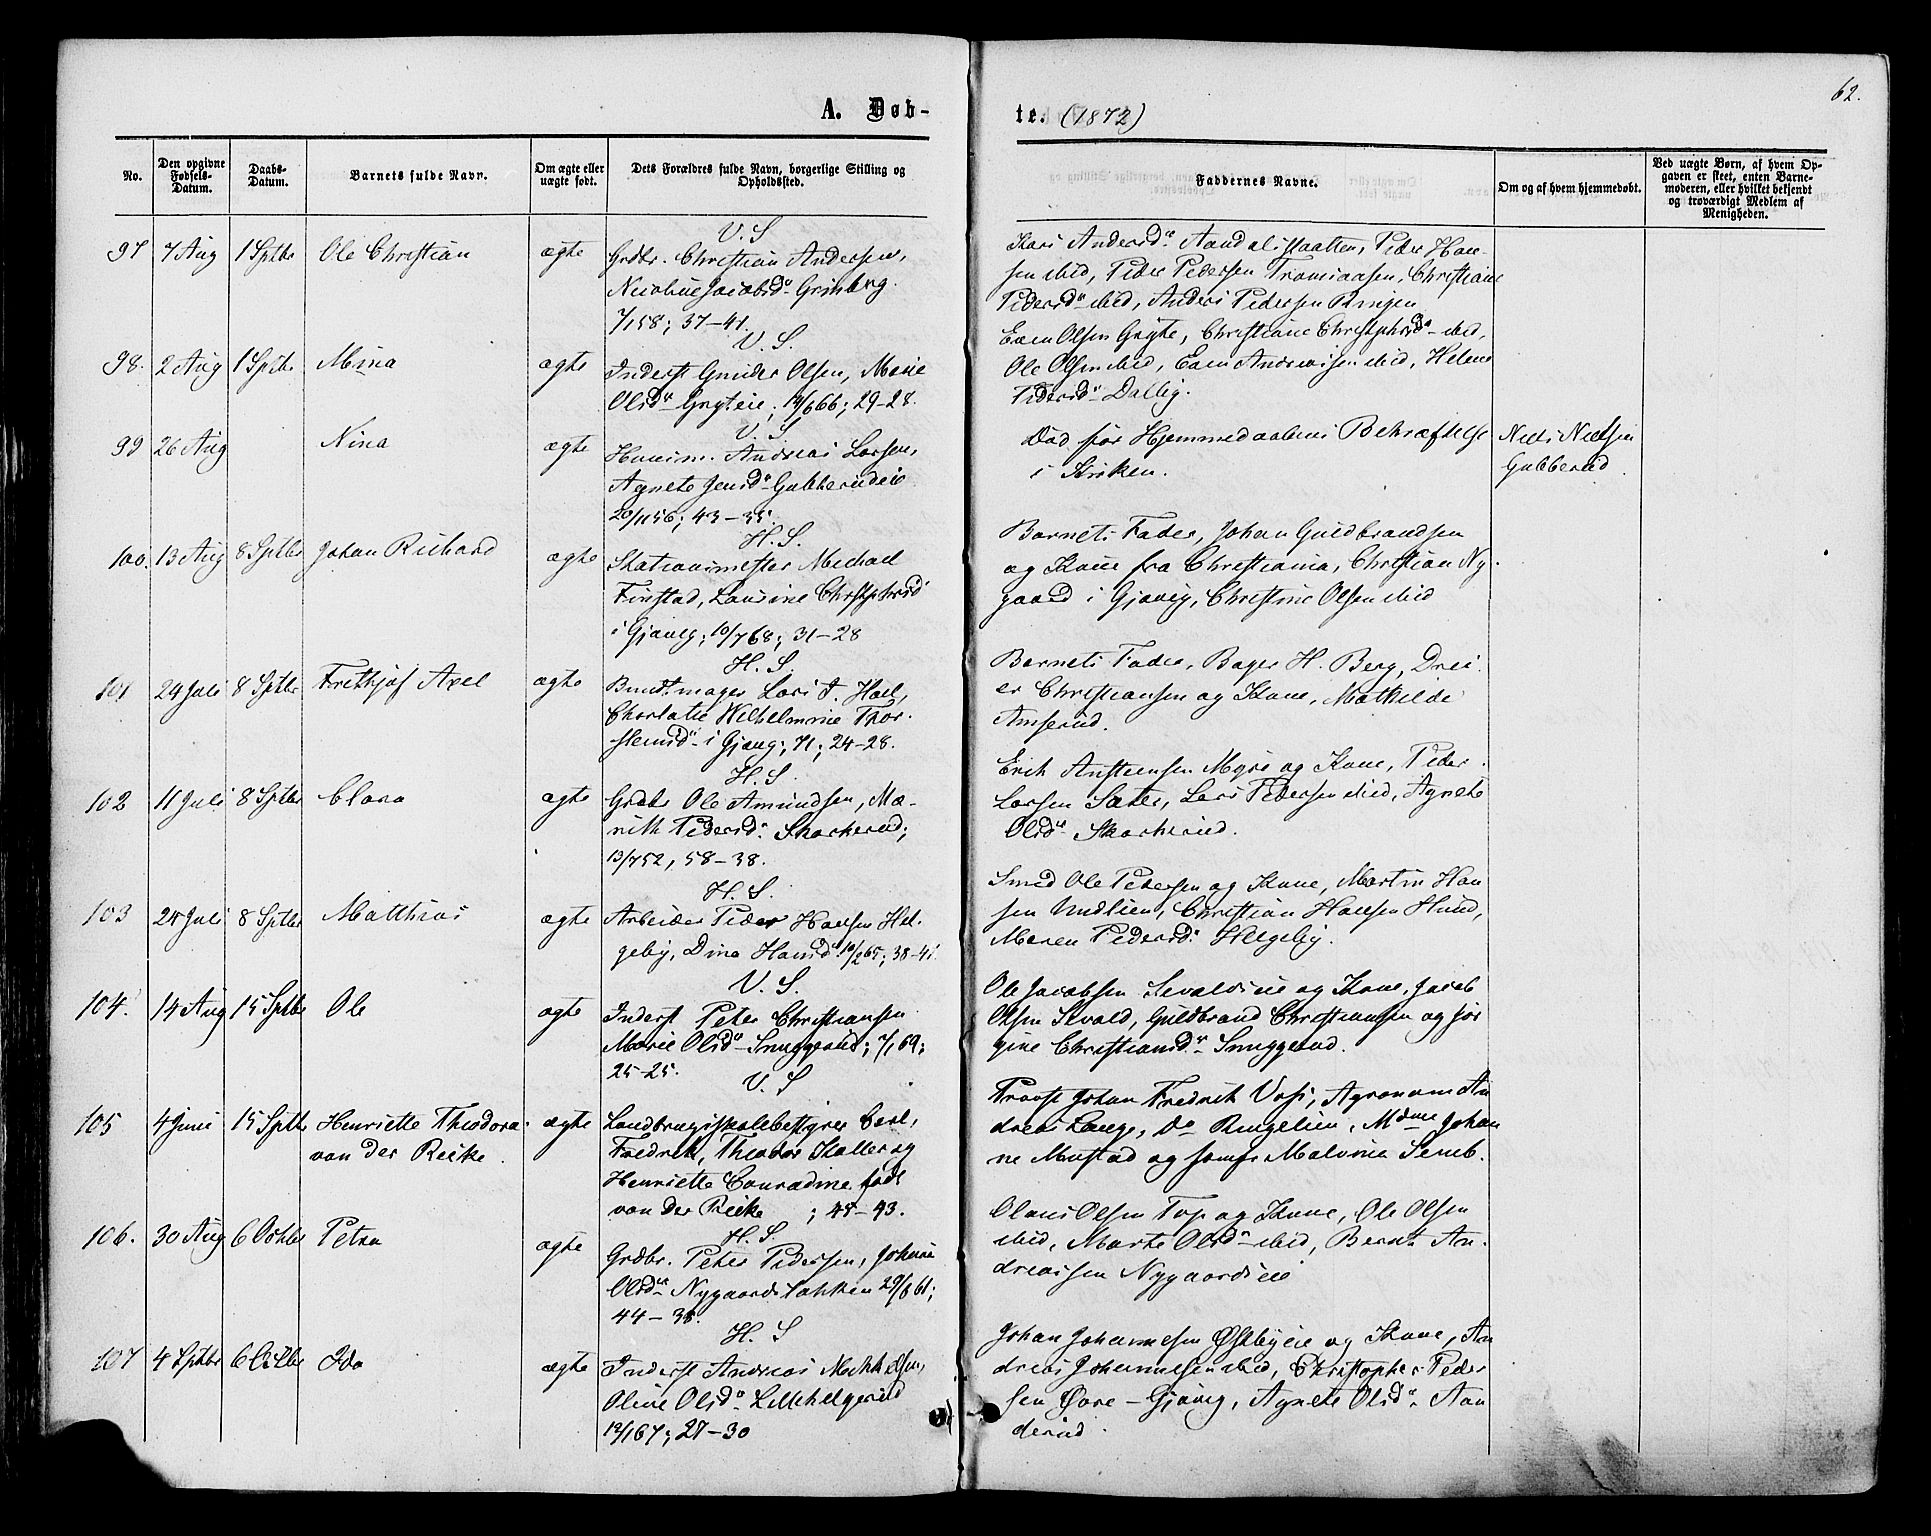 62.
A. Døb-
te. (1872)
No.
Den opgivne Fødsels-Datum.
Daabs-Datum.
Barnets fulde Navn.
Om ægte eller uægte født.
Dets Forældres fulde Navn, borgerlige Stilling og Opholdssted.
Faddernes Navne.
Om og af hvem hjemmedøbt.
Ved uægte Børn, af hvem Opgaven er skeet, enten Barnemoderen, eller hvilket bekjendt og troværdigt Medlem af Menigheden.
V. S
97 7 Aug 1 Sptbr Ole Christian ægte Grdbr. Christian Andersen,
Jacobsd. Grinberg.
7/158; 37-41.
Kari Andersd. Peder Han-
sen ibid, Peder Pedersen Christiane
Pedersd. ibid, Anders Pedersen Ringen
V. S.
98. 2 Aug 1 Sptbr Mina ægte Inderst Gunder Olsen, Marie
Olsd. Grythe, Christiane ibid,
Ole Olsen ibid, Even Andreassen ibid, Helene
Pedersd. Dalby.
29-28.
V. S.
99 26 Aug Nina ægte Huusm. Andreas Larsen,
Agnete Jensd. Gubberudeie
20/1156; 43-35.
Død før Hjemmedaabens Bekræftelse
i Kirken.
Niels Nielsen
Gubberud
H. S.
100. 13 Aug 8 Sptbr Johan Richard ægte Stationsmester Michael
Finstad, Laurine
i Gjøvig; 10/768; 31-28
Barnets Fader, Johan Guldbrandsen
og Kone fra Christiania, Christian Ny-
gaard i Gjøvig, Christine Olsen ibid
H. S.
101 24 Juli 8 Sptbr Frithjof Axel ægte Buntmager Lars J. Hoel,
Charlotte Wilhelmine Thor-
stensd. i Gjøvig; 71; 24-28.
Barnets Fader, Bager H. Berg, Drei-
er Christiansen og Kone, Mathilde
Amserud.
H. S.
102 11 Juli 8 Sptbr Clara ægte Grdbr Ole Amundsen, Ma-
rith Pedersd. Skarherud;
13/752, 58-38.
Erik Anstensen Myre og Kone, Peder
Larsen Sæter, Lars Pedersen ibid, Agnete
Olsd. Skarherud.
H. S.
103 24 Juli 8 Sptbr Matthias ægte Arbeider Peder Hansen Hel-
geby, Dina Hansd. 10/265; 38-41.
Smed Ole Pedersen og Kone, Martin Han-
sen Christian Hansen Hund,
Maren Pedersd. Helgeby.
V. S.
104. 14 Aug 15 Sptbr Ole ægte Inderst Peter Christiansen
Marie Olsd. Snuggerud; 7/169;
25-25.
Ole Jacobsen og Kone, Jacob
Olsen Sevald, Guldbrand Christiansen og Jør-
gine Christiansd. Snuggerud.
V. S
105 4 Juni 15 Sptbr Henriette Theodora
von der Recke ægte Landbrugsskolebestyrer Carl,
Fredrik, Theodor Koller og
Henriette Conradine født
von der Recke ; 45-43.
Provst Johan Fredrik Voss, Agronom An-
dreas Lange, Do Ringelien, Mdme Johan-
ne Mustad og Jomfr Malvine
H. S.
106. 30 Aug 6 Octbr Petra ægte Grdbr. Peter Pedersen, Johane
Olsd. Nygaardsbakken 29/661;
44-38.
Olaus Olsen Top og Kone, Ole Olsen
ibid, Marte Olsd. ibid, Bernt An-
dreassen Nygaardseie
H. S
107 4 Sptbr 6 Octbr Ida ægte Inderst Andreas Mikkelsen,
Oline Olsd. Lillehelgerud
12/167; 27-30
Johan Johannesen Østbyeie og Kone, An-
dreas Johannesen ibid, Christopher Peder-
sen Gjøvig, Agnete Olsd. Aan-
derud.